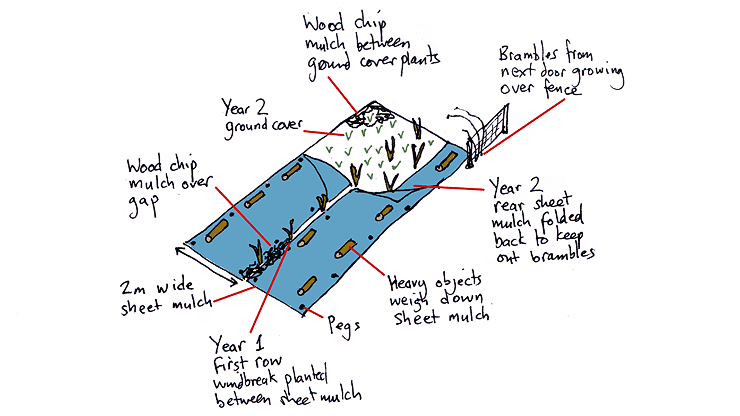 Wood chip
mulch between
ground cover plants
Brambles from
next door growing
over fence
Year 2
ground cover
Wood chip
mulch over
gap
Year 2
rear sheet
mulch folded
back to keep
out brambles
2m wide
sheet mulch
Heavy objects
weigh down
sheet mulch
Pegs
Year 1
first row
windbreak planted
between sheet mulch